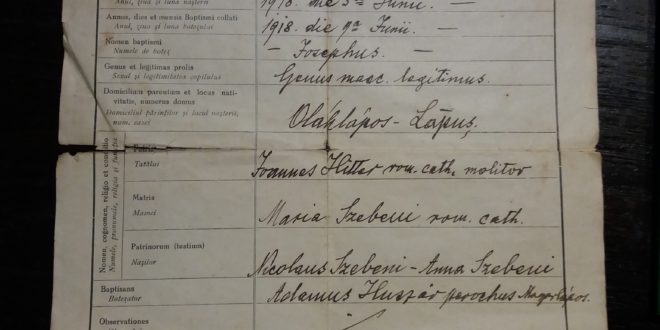 Anul, ziua și luna nașterii
1918. die 5ta Junii. —
Annus, dies et mensis Baptismi collati
Anul, ziua și luna botezului
1918. die 9a Junii. —
Nomen baptismi
Numele de botez
— Josephus. —
Genus et legitimas prolis
Sexul și legitimitatea copilului
Genus masc. legitimus.
Domicilium parentum et locus nati-
vitatis, numerus domus
Domiciliul părinților și locul nașterii,
num. casei
Oláhlápos - Lăpuș.
Nomen, cognomen, religio et conditio
Numele, pronumele, religia și funcția
Patris
Tatălui
Joannes Hitter rom. cath. molitor
Matris
Mamei
Maria Szebeni rom. cath.
Patrinorum (testium)
Nașilor
Nicolaus Szebeni - Anna Szebeni
Baptisans
Botezător
Adamus Huszár parochus Magyarlápos.
Observationes